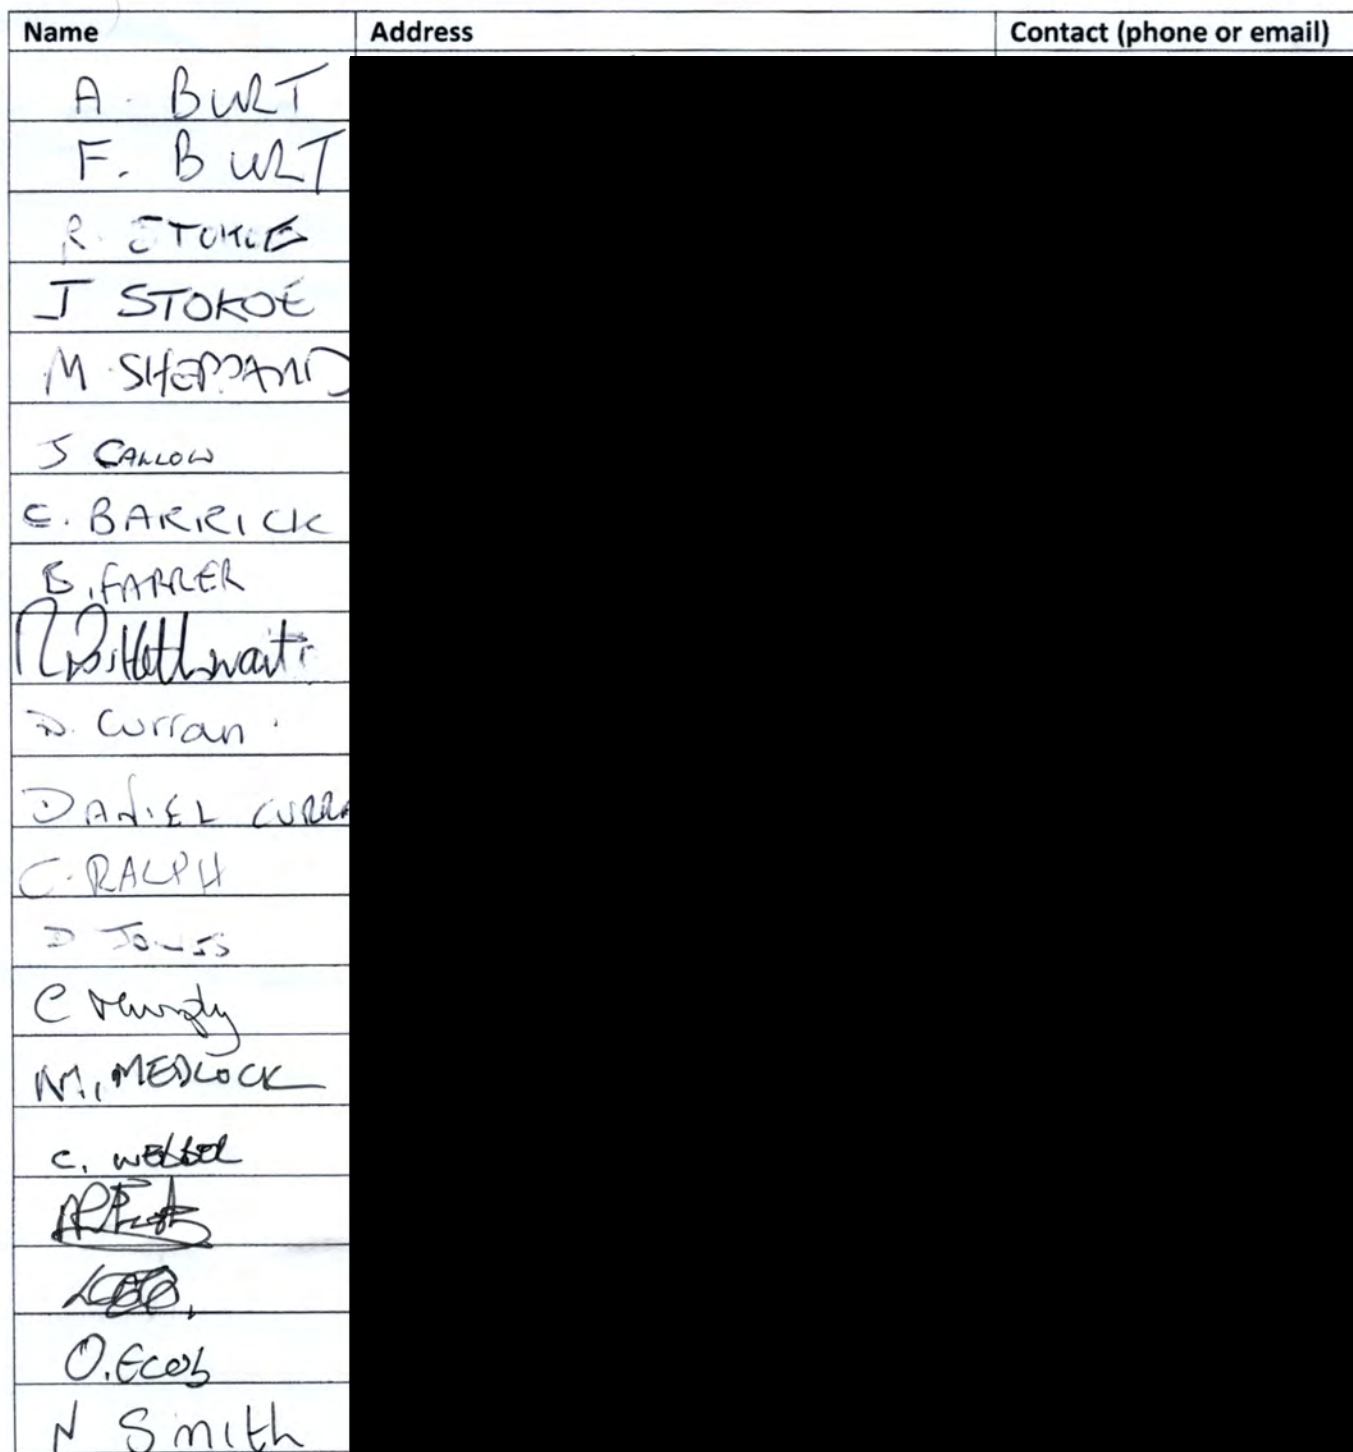 Name Address Contact (phone or email)
A. BURT
F. BURT
R. STOKOE
J STOKOE
M. SHEPPARD
J CALLOW
C. BARRICK
B. FARRER
D. Curran
DANIEL CURRA
C. RALPH
D JONES
C Murphy
M. MEDLOCK
C. WEBBER
O. Ecob
N Smith